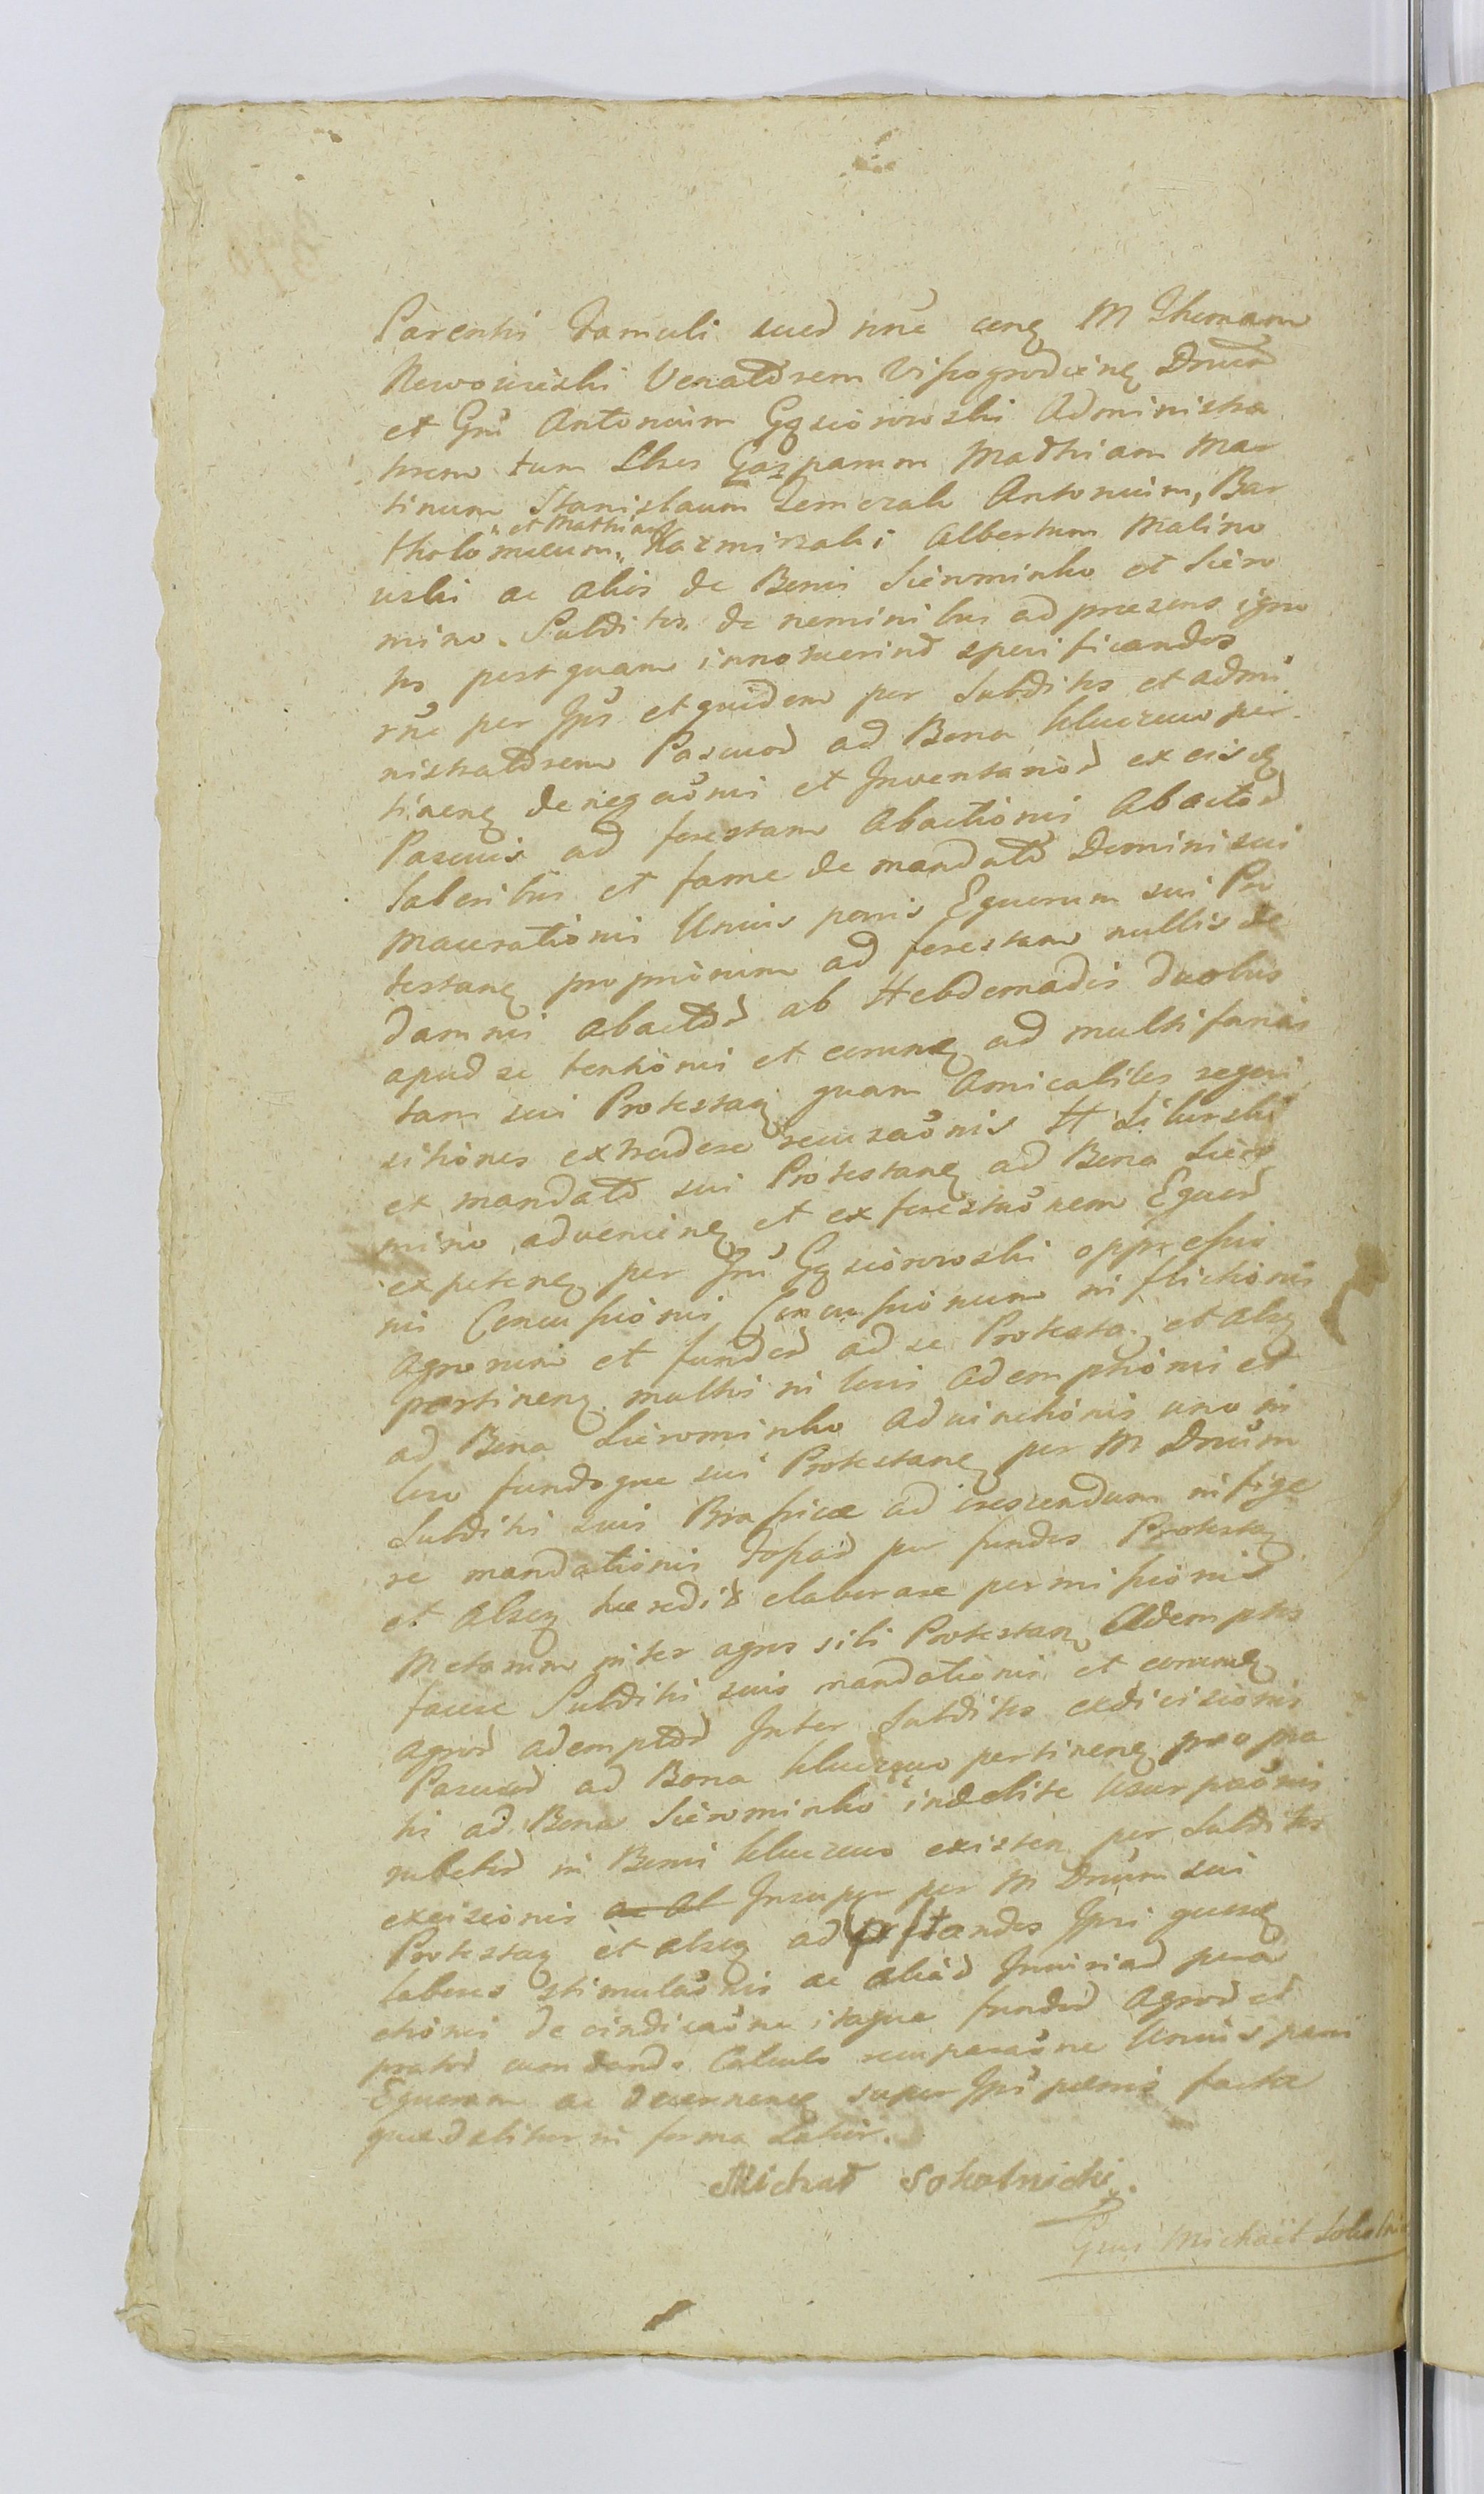 Parentis famuli sued nne cenq M Thomam
Nowowieski Venatorem Vissogrodienq Dnum
et Gnu Antonium Gąsiorowski Administra
torem tum Lbres Gasparum Mathiam Mar
tinum Stanislaum Antonium, Bar
et Mathiam
tholomeum,, Kazmirzak; Albertum Malino
wski ac alios de Bonis Sierominko et Siero
mino. Subditos de nominibus ad praesens igno
tos postquam innotuerint specificandos
rne per Ipsos et quidem per Subditos et admi
nistratorem Pascuod ad Bona Kluczewo per
tinenq denegaonis et Inventariod ex eisdq
Pascuis ad forestam abactionis Abactod
laboribus et fame de mandato Domini sui
macerationis Unius paris Equorum sui Pro
testanq propriorum ad forestam nullis de
damnis abactod ab Hebdomadis duobus
apud se tentionis et eorundq ad multifarias
tam sui Protestanq quam Amicabiles requi
sitiones extradere recusaonis H
et mandato sui Protestanq ad Bona Siero
mino advenienq et ex forestaonem Equod
expetenq per Gnu Gąsiorowski oppressio
nis Concussionis Concussionum inflictionis
Agrorum et fundod ad se Protesta. et alsq
pertinenq. multis in locis ademptionis et
ad Bona Sierominko advinctionis uno in
loco fundoque sui Protestanq per M Dnum
Subditis suis Brassicae ad crescendum infige
re mandationis fossad per fundos Protestaq
et alsq haeredis elaborare permissionis
Metarum inter agros sibi Protestanq Ademptos
facere Subditis suis mandationis et eorundq
agrod ademptod Inter Subditos exdivisionis
Pascuod ad Bona Kluczewo pertinenq pro pra
tis ad Bona Sierominko indebite Usurpaonis
rubetod in Bonis Kluczewo existen per Subditos
excisionis ac al Insuper per M Dnum sui
Protestaq et alsq ad prstandos Ipsi quosdq
labores stimulaonis ac aliad Iniuriad pera
ctionis de vindicaone itaque fundod Agrod et
pratod cum dando Calculo recuperaone Unius paris
Equorum ac decernenq super Ipsis poenis facta
quae dabitur in forma Latior.
Michał Sokolnicki.
Gnus Michaël Sokolnic